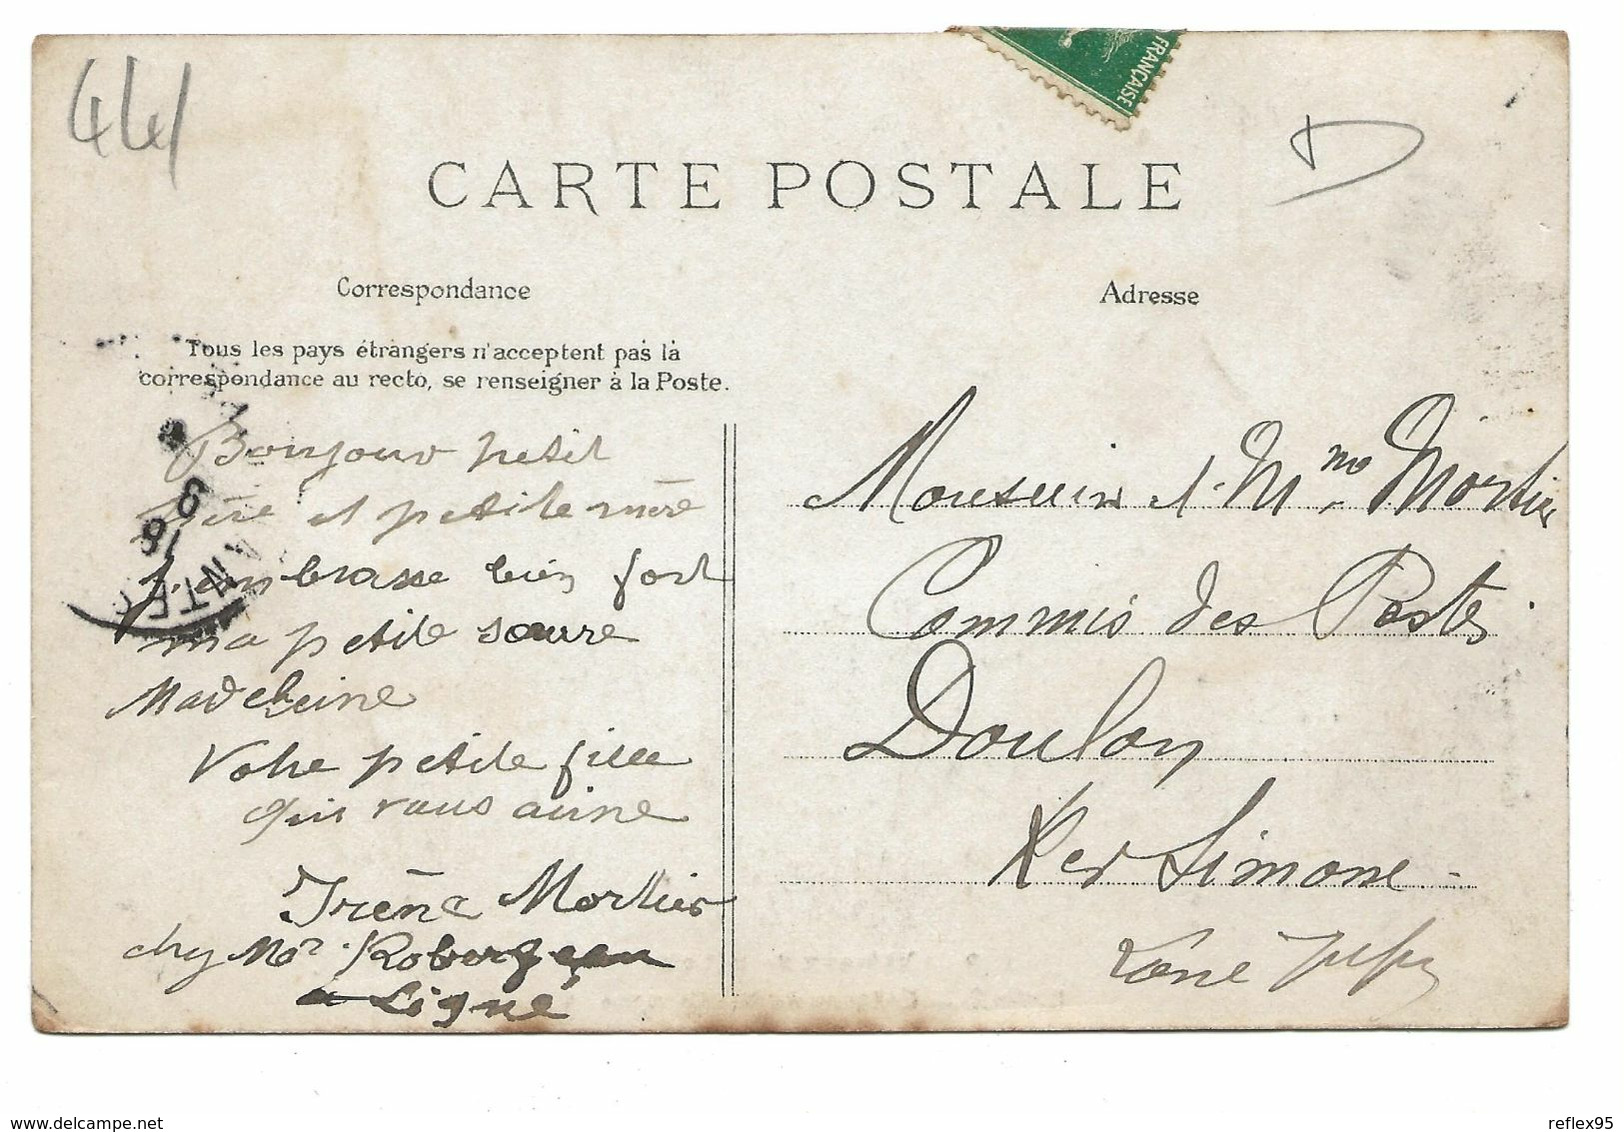 44
FRANÇAISE
CARTE POSTALE
Correspondance
Tous les pays étrangers n'acceptent pas la
correspondance au recto, se renseigner à la Poste.
Bonjour petit
père et petite mère
j'embrasse bien fort
ma petite soeure
Madeleine
Votre petite fille
qui vous aime
Irène Mortier
chez Mr
a Ligné
9
18
NANTES
Adresse
Monsieur et Mme Mortier
Commis des Postes
Doulon
Ker Simone
www.delcampe.net
reflex95